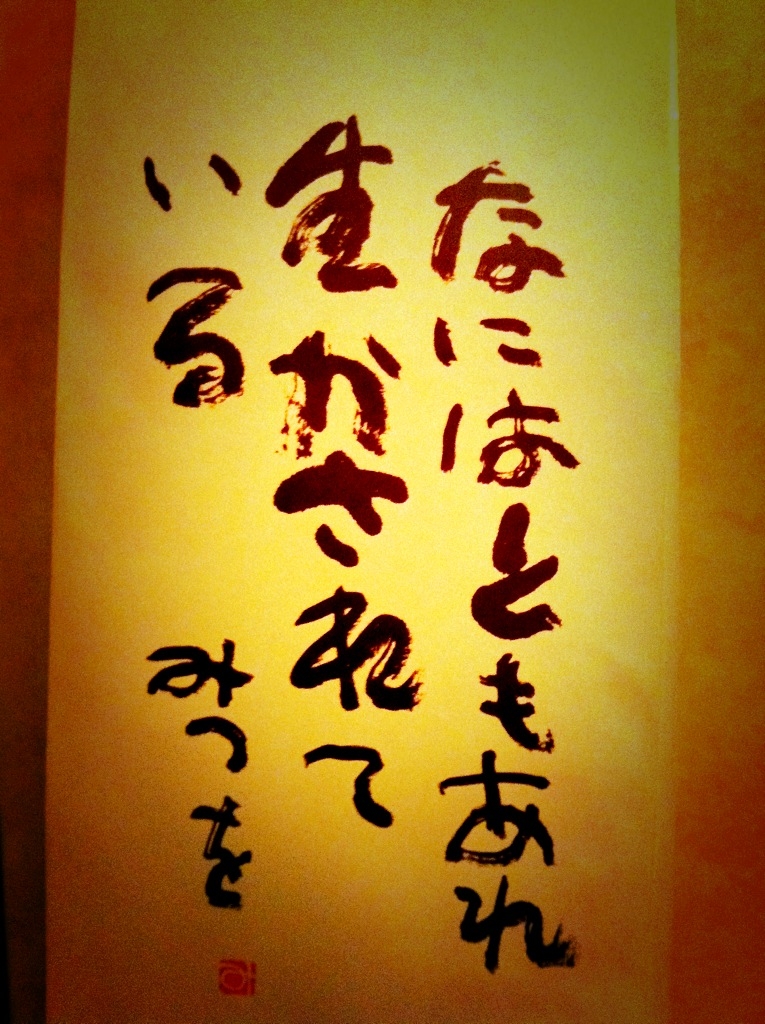 なにはともあれ
生かされて
いる
みつを